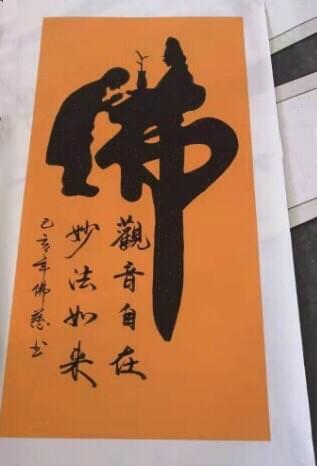 佛
觀音自在
妙法如来
己亥年佛慈书